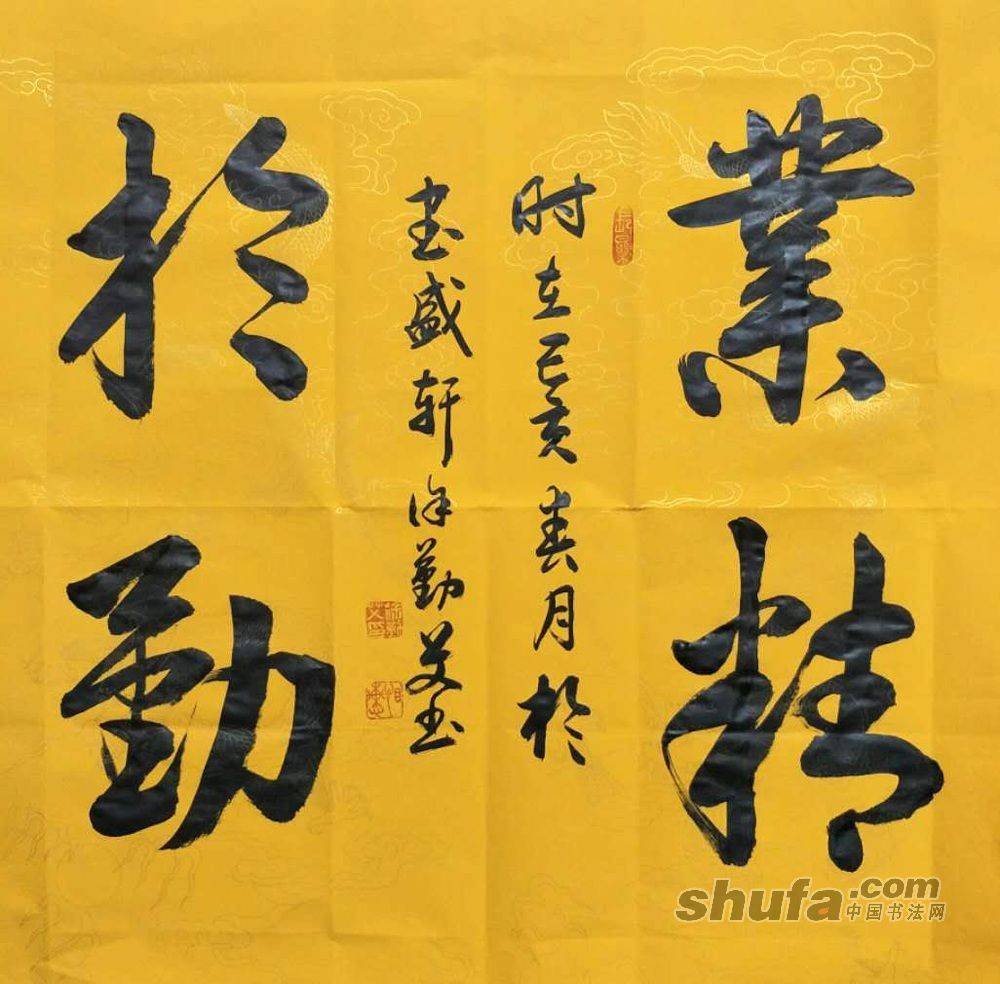 業精
於勤
时在己亥春月於
書盛轩徐勤艾書
shufa.com
中国书法网